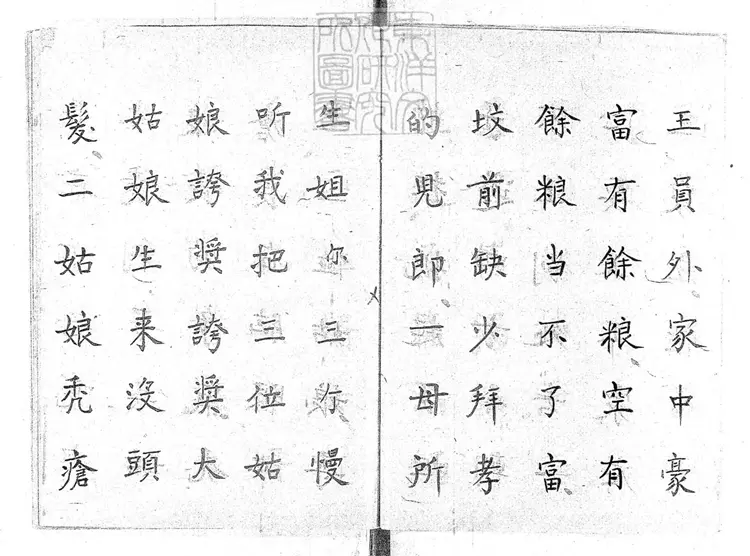 王員外家中豪
富有餘粮空有
餘粮当不了富
坟前缺少拜孝
的児郎一母所
生姐你三行慢
听我把三位姑
娘誇獎誇獎大
姑娘生来沒頭
髮二姑娘禿瘡